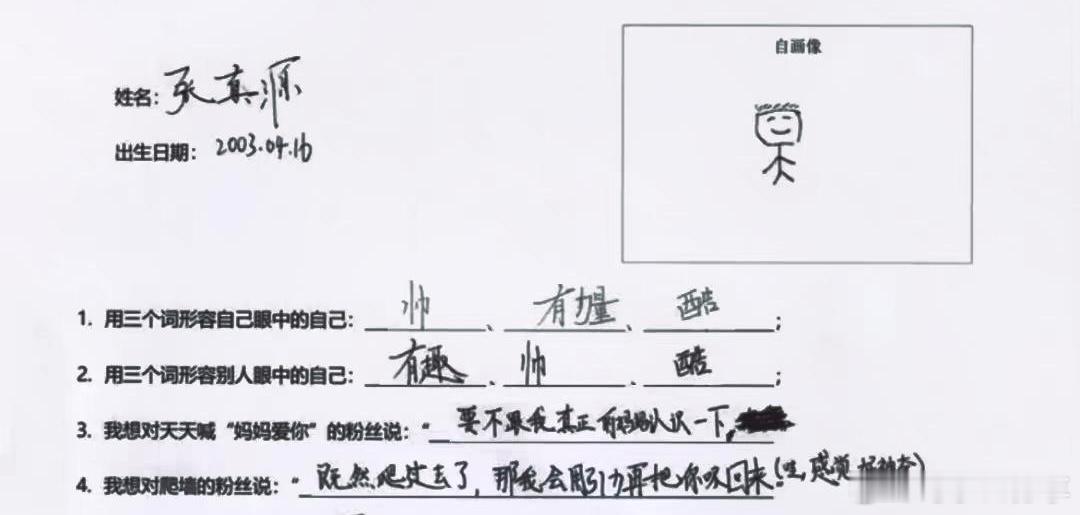 自画像
姓名：张真源
出生日期：2003.04.16
1. 用三个词形容自己眼中的自己：帅、有力量、酷；
2. 用三个词形容别人眼中的自己：有趣、帅、酷；
3. 我想对天天喊“妈妈爱你”的粉丝说：“要不跟我真正的妈妈认识一下，
4. 我想对爬墙的粉丝说：“既然爬过去了，那我会用引力再把你吸回来！（哇，感觉好神奇）